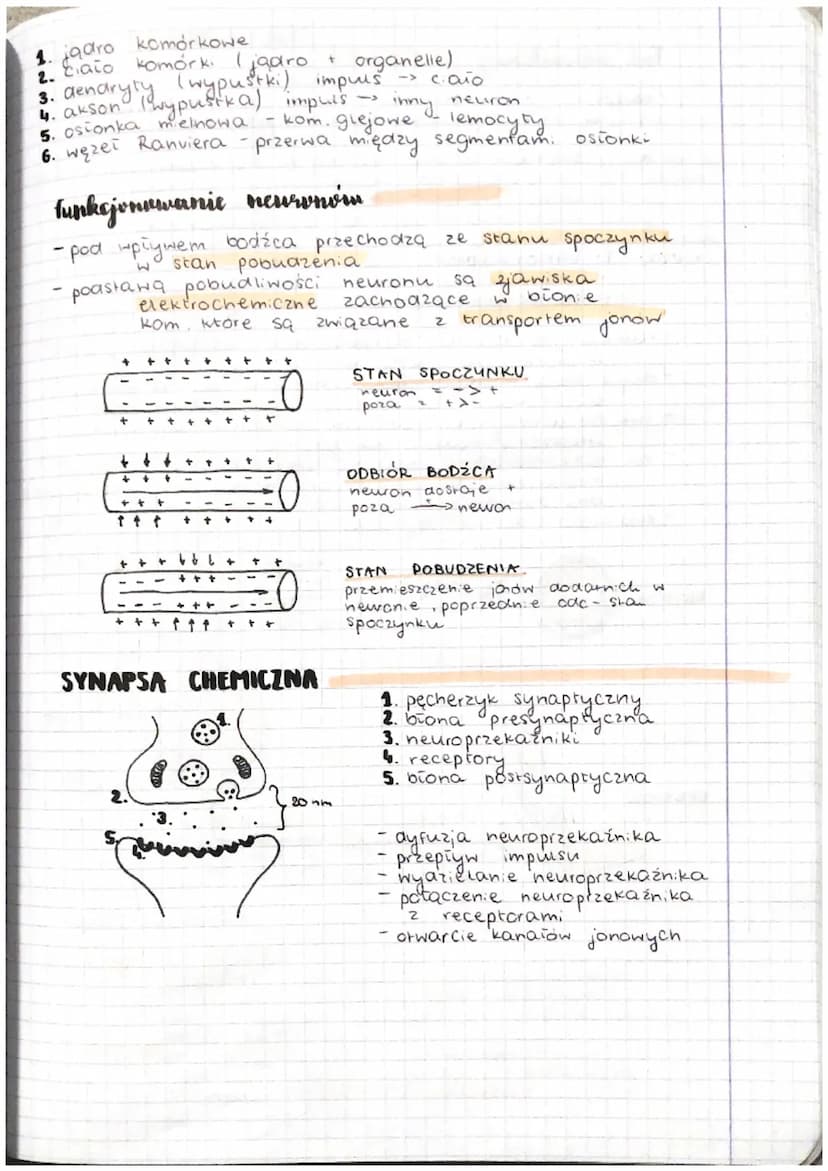 1. jądro komórkowe
2. ciało komórki (jądro + organelle)
3. dendryty (wypustki) impuls -> ciało
4. akson (wypustka) impuls -> inny neuron
5. osłonka mielinowa - kom. glejowe - lemocyty
6. węzeł Ranviera - przerwa między segmentami osłonki
funkcjonowanie neuronów
- pod wpływem bodźca przechodzą ze stanu spoczynku
w stan pobudzenia
- podstawą pobudliwości neuronu są zjawiska
elektrochemiczne zachodzące w błonie
kom. które są związane z transportem jonów
+ + + + + + + +
- - - - - - - -
STAN SPOCZYNKU
neuron = - > +
poza = + > -
- - - - - - -
+ + + + + + +
ODBIÓR BODŹCA
neuron dostaje +
poza + -> neuron
STAN POBUDZENIA
przemieszczenie jonów dodatnich w
neuronie, poprzednie odc - stan
spoczynku
SYNAPSA CHEMICZNA
1. pęcherzyk synaptyczny
2. błona presynaptyczna
3. neuroprzekaźniki
4. receptory
5. błona postsynaptyczna
1.
2.
20 nm
3.
5.
4.
- dyfuzja neuroprzekaźnika
- przepływ impulsu
- wydzielanie neuroprzekaźnika
- połączenie neuroprzekaźnika
z receptorami
- otwarcie kanałów jonowych